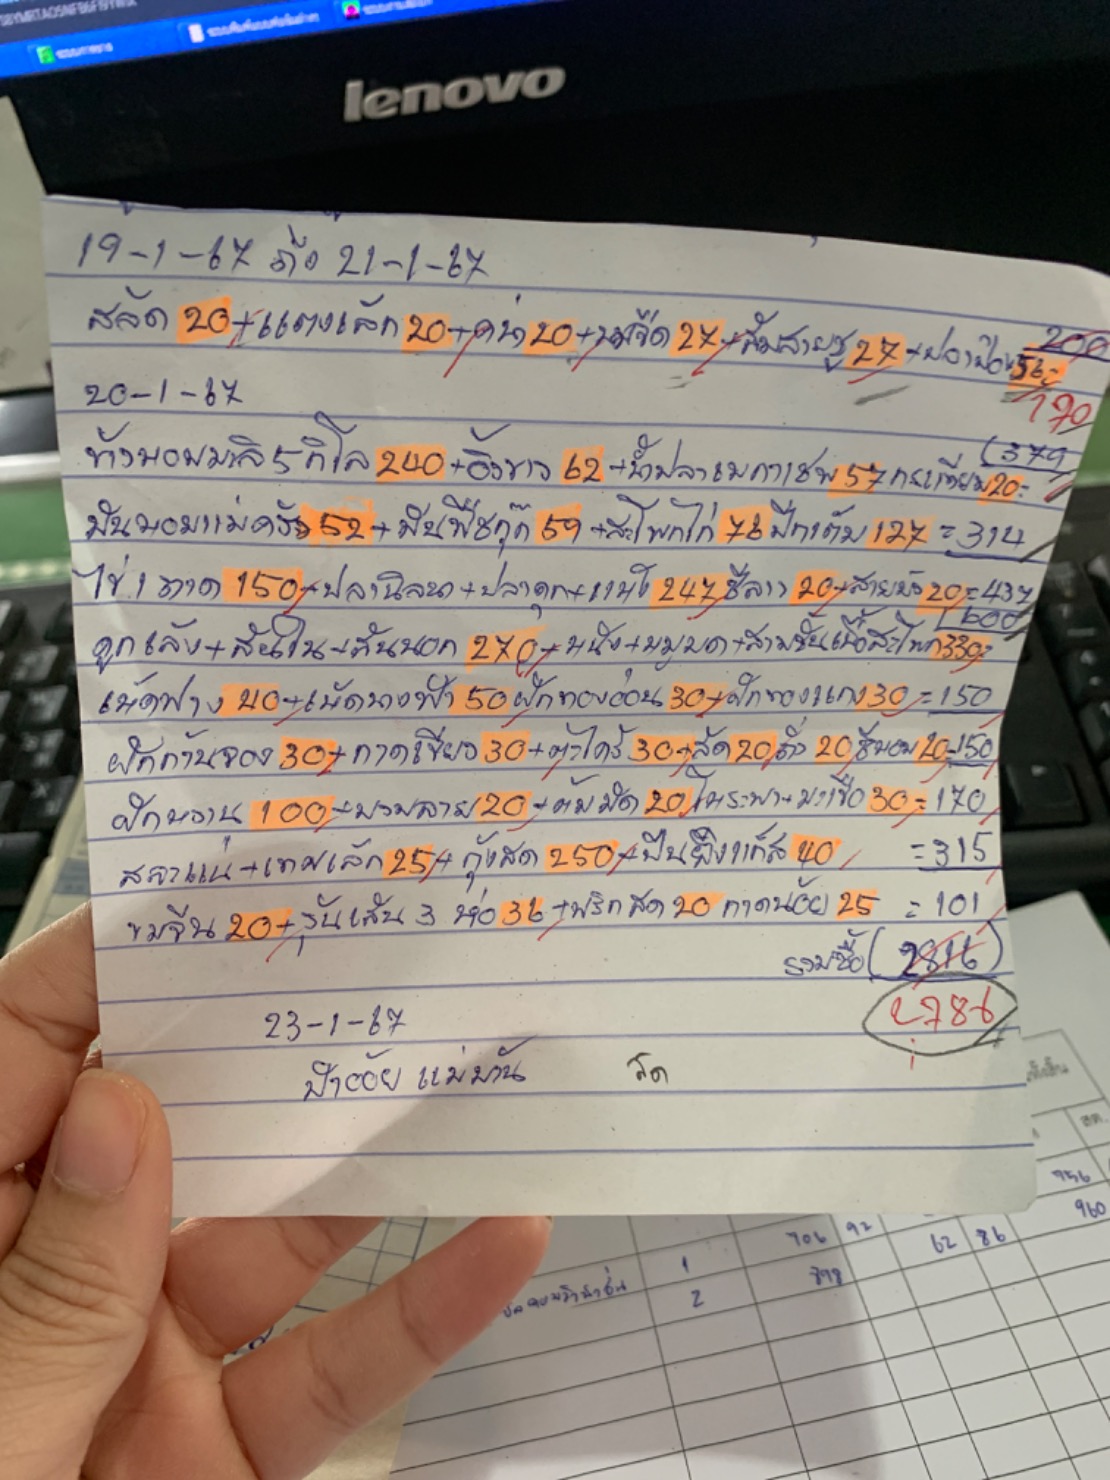 lenovo
19-1-67 ถึง 21-1-67
สลัด 20 + แตงเล็ก 20 + คน่า 20 + นมจืด 27 + ส้มสายชู 27 + ปอเปี๊ยะ 56 =
200
170
20-1-67
ข้าวหอมมะลิ 5 กิโล 240 + 62 + น้ำปลาเมกาเชฟ 57 กระเทียม 20 =
(379
มันหอมแม่ครัว 52 + มันพืชกุ๊ก 59 + สะโพกไก่ 76 ปีกเต็ม 127 = 314
ไข่ 1 ถาด 150 + ปลานิล + ปลาดุก + 247 ชีลาว 20 + สายบัว 20 = 437
600
ดูกเล้ง + สันใน + สันนอก 270 + หนัง + หมูบด + สามชั้น เนื้อสะโพก 330 =
เห็ดฟาง 40 + เห็ดนางฟ้า 50 ฟักทองอ่อน 30 + ฟักทองแกง 30 = 150
ผักก้านจอง 30 + กาดเขียว 30 + ตะไคร้ 30 + สลัด 20 ถั่ว 20 ชีหอม 20 = 150
ผักหวาน 100 + 20 + ต้มมัด 20 โหระพา + มะเขือ 30 = 170
สะระแหน่ + เทียมเล็ก 25 + กุ้งสด 250 + ปืนยิงแก๊ส 40 = 315
ขมจีน 20 + วุ้นเส้น 3 ห่อ 36 + พริกสด 20 กาดน้อย 25 = 101
รวมซื้อ (2816)
2786
23-1-67
ป้าอ้อย แม่บ้าน สด
756
960
1 706 92 62 86
2 798